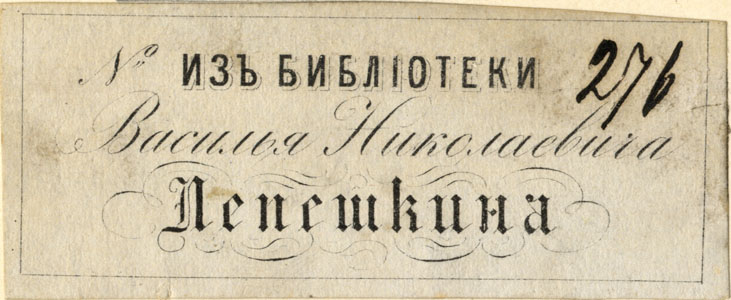 № ИЗЪ БИБЛІОТЕКИ 276
Василья Николаевича
Лепешкина